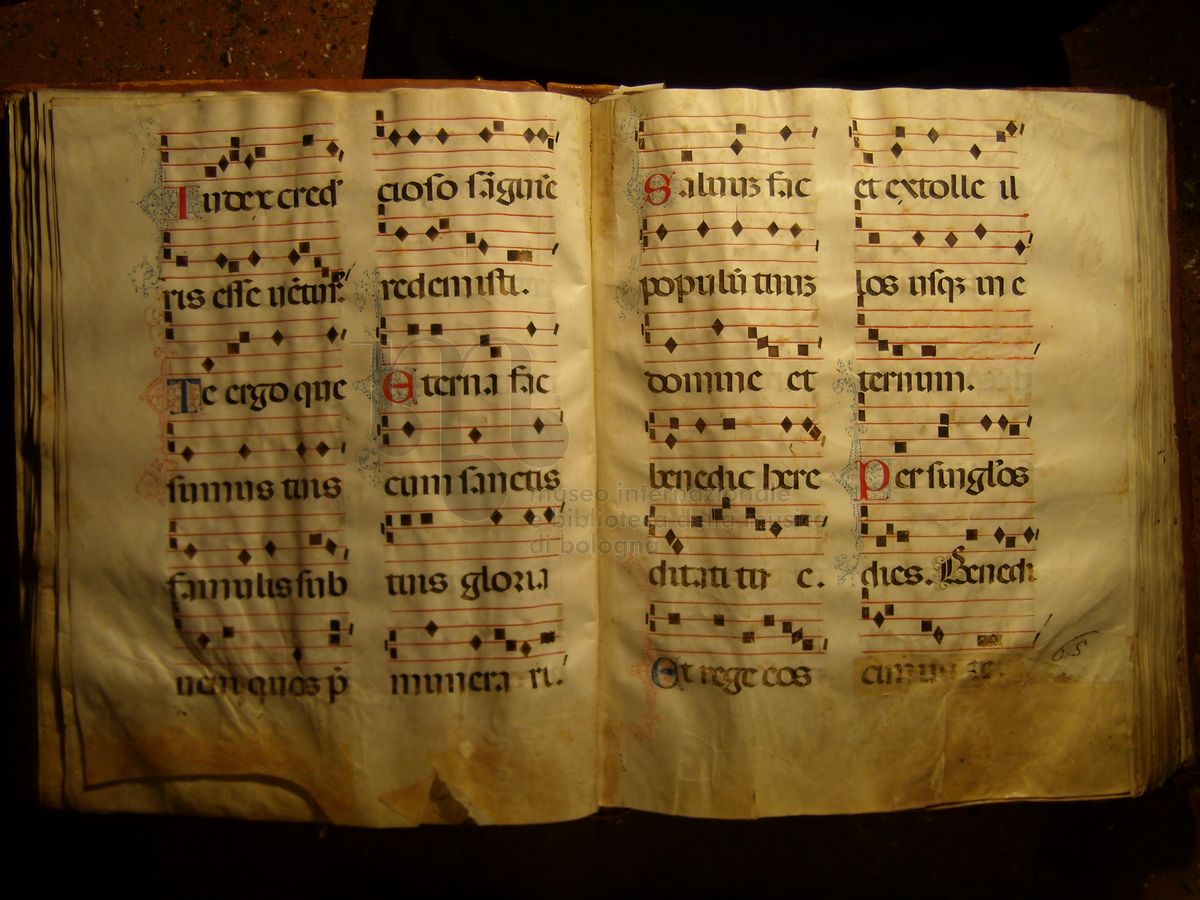 Iudex cred'
ris esse uētur'.
Te ergo que
sumus tuis
famulis sub
ueni quos p̄
cioso sāguīe
redemisti.
Eterna fac
cum sanctis
tuis gloria
munera ri.
Saluuꝫ fac
populū tuuꝫ
domine et
benedic here
ditati tue.
Et rege eos
et extolle il
los usqꝫ in e
ternum.
Per singl'os
dies. Benedi
65
museo internazionale
e biblioteca della musica
di bologna